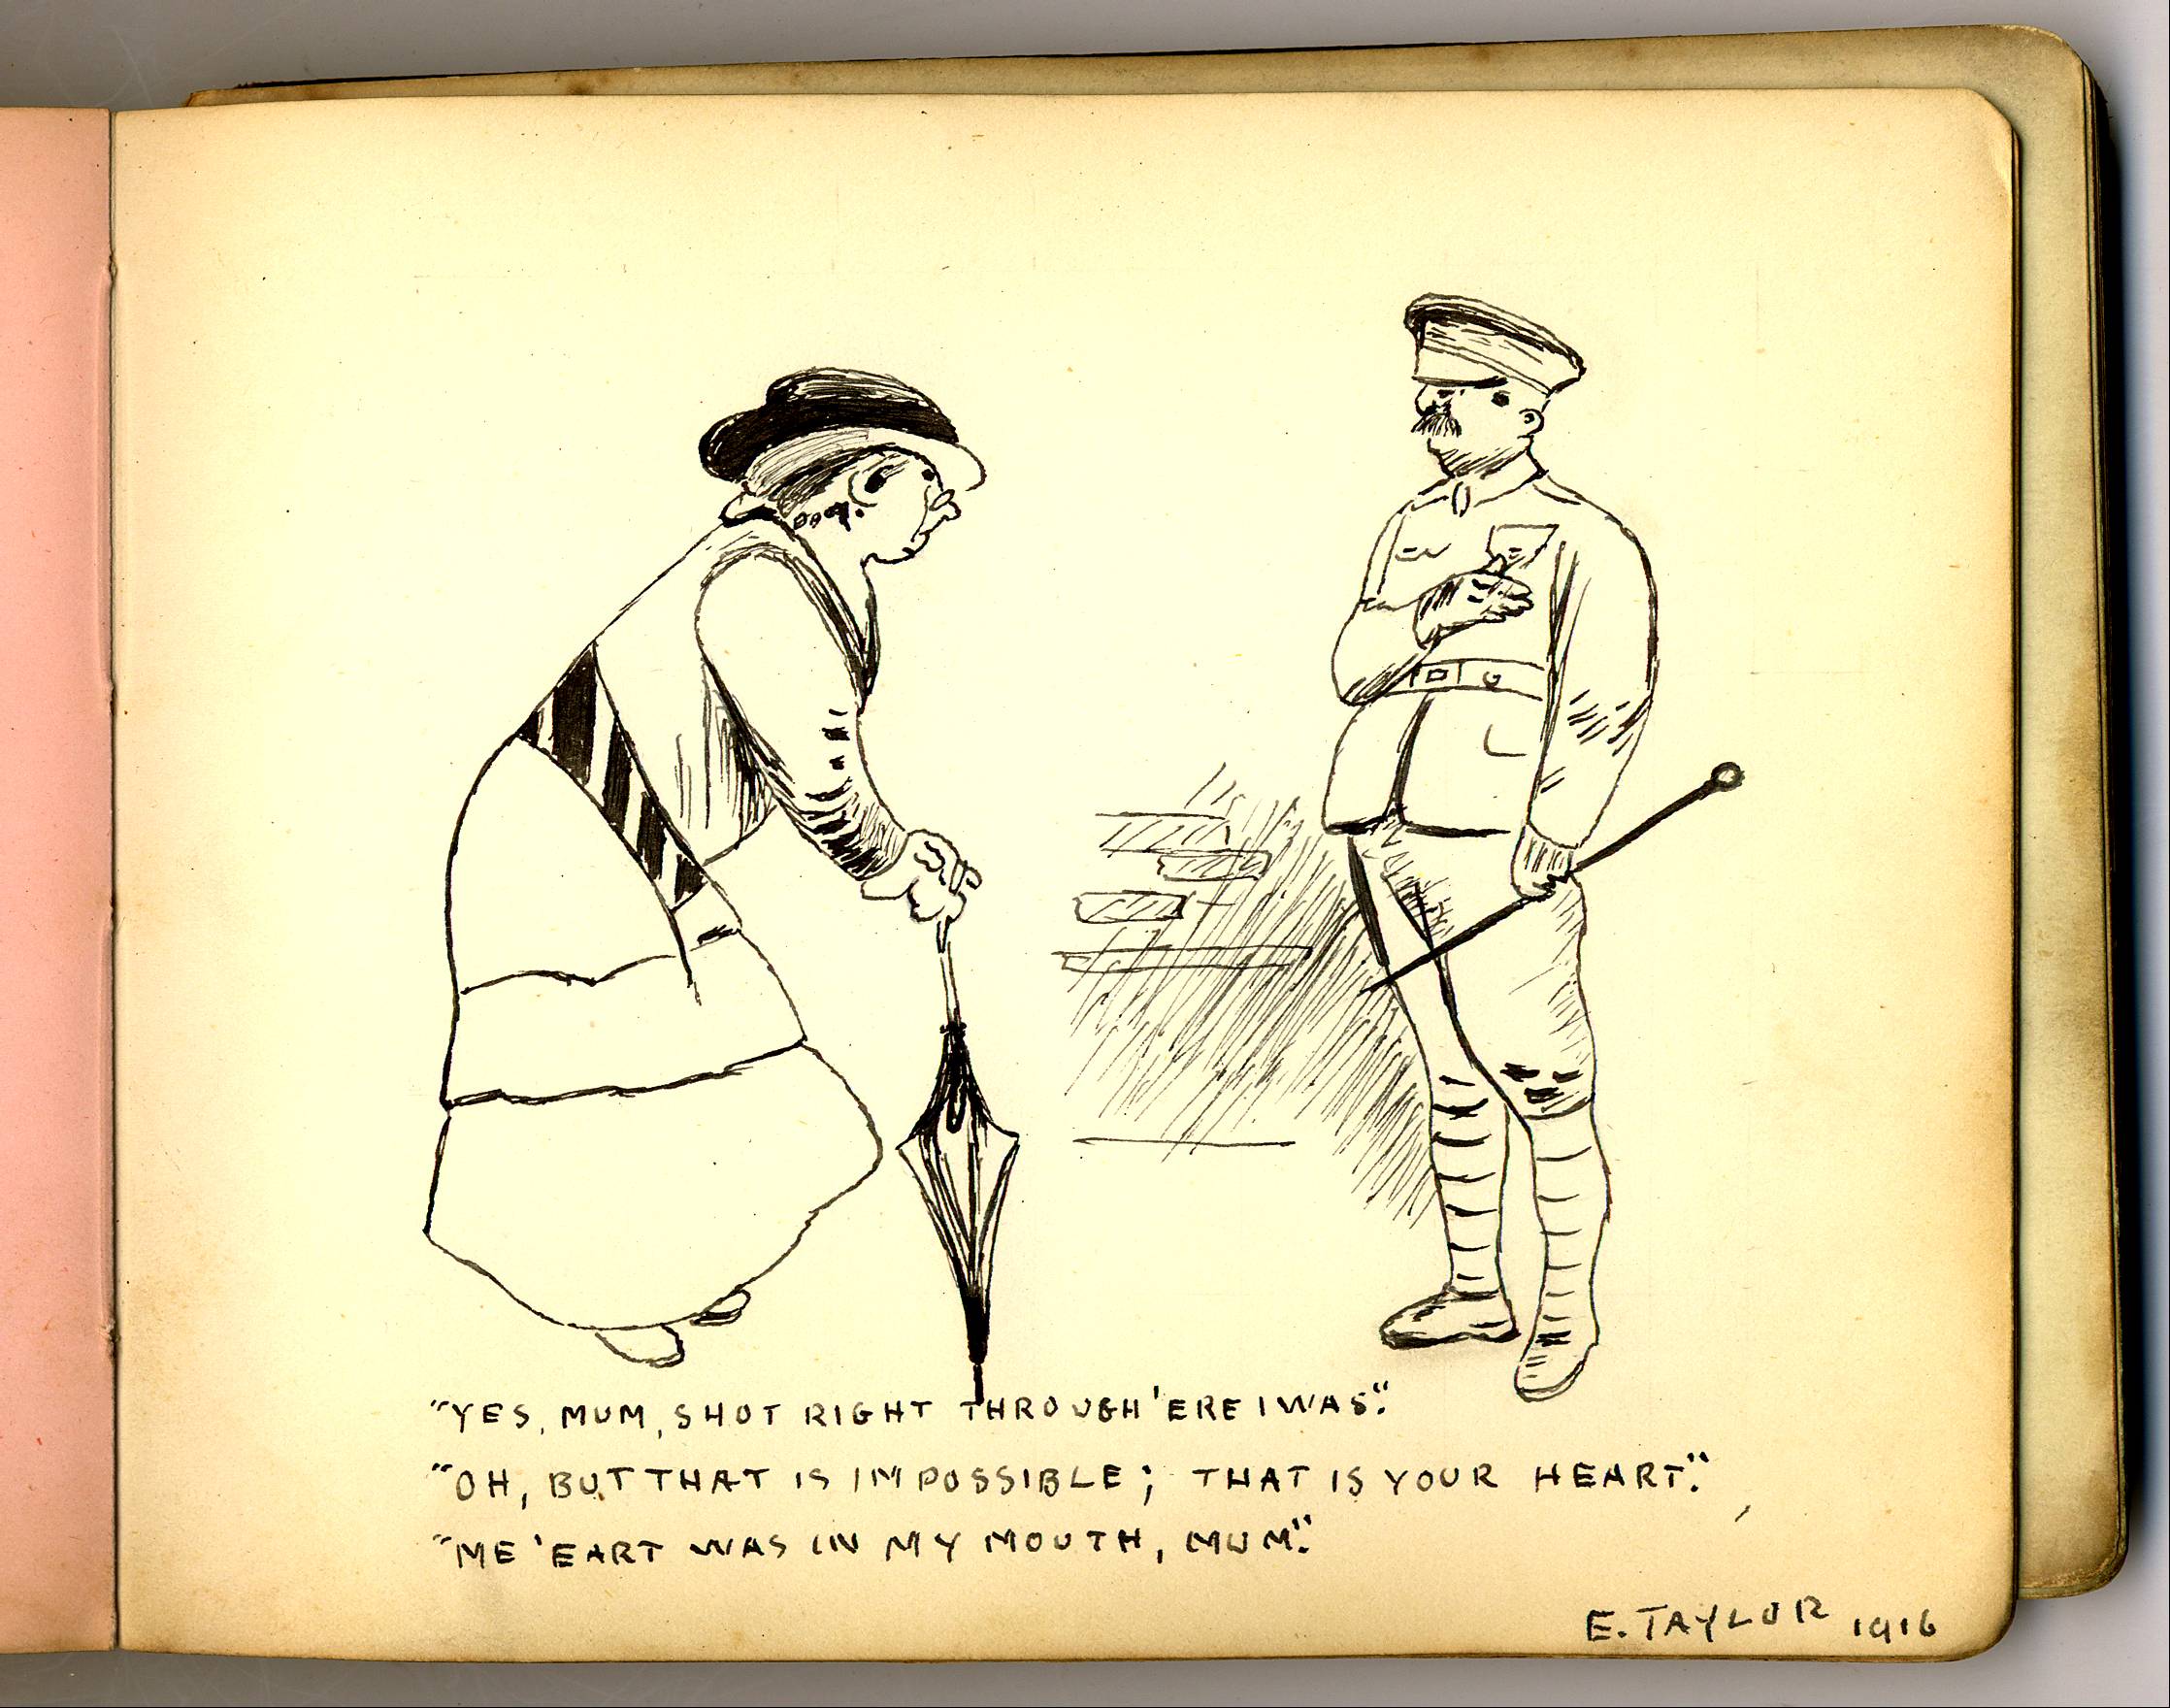 "YES, MUM, SHOT RIGHT THROUGH 'ERE I WAS."
"OH, BUT THAT IS IMPOSSIBLE; THAT IS YOUR HEART."
"ME 'EART WAS IN MY MOUTH, MUM."
E. TAYLOR 1916